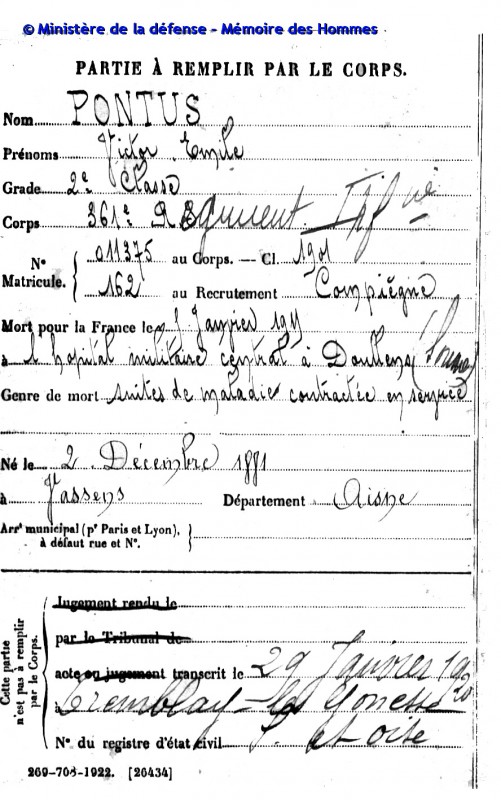 © Ministère de la défense - Mémoire des Hommes
PARTIE À REMPLIR PAR LE CORPS.
Nom PONTUS
Prénoms Victor Emile
Grade 2e Classe
Corps 361e Régiment Infie
Nº Matricule. 011375 au Corps. — Cl. 1901
162 au Recrutement Compiègne
Mort pour la France le Janvier
à l'hôpital militaire central à Doullens (Somme)
Genre de mort suites de maladie contractée en service
Né le 2 Décembre 1881
à Vassens Département Aisne
Arrt municipal (pr Paris et Lyon),
à défaut rue et Nº.
Cette partie n'est pas à remplir par le Corps.
Jugement rendu le
par le Tribunal de
acte ou jugement transcrit le 29 Janvier 1920
à Tremblay-les Gonesse
Nº du registre d'état civil S. et Oise
269-708-1922. [26434]